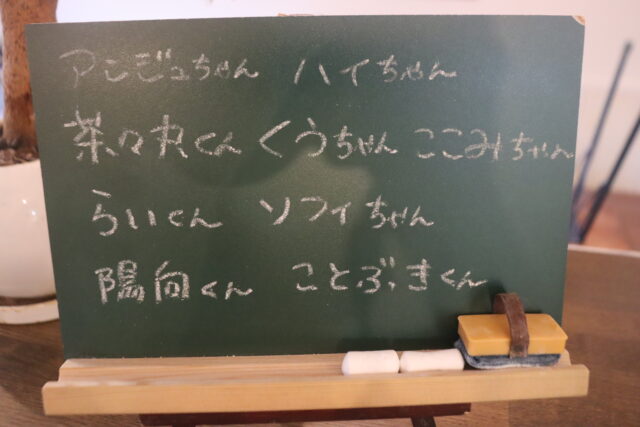 アンジュちゃん ハイちゃん
茶々丸くん くうちゃん ここみちゃん
らいくん ソフィちゃん
陽向くん ことぶきくん